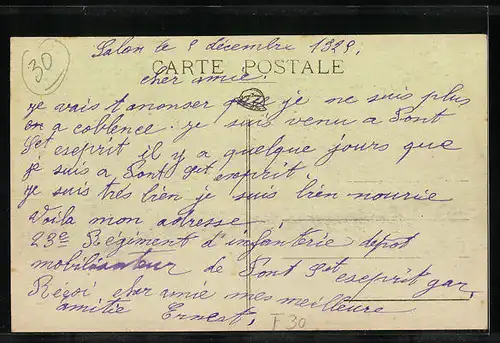 30
Salon le 8 décembre 1929.
CARTE POSTALE
cher amie.
je vais t anonser que je ne suis plus
a coblence. je suis venu a Pont
St eseprit il y a quelque jours que
je suis a Pont St esprit
je suis trés bien je suis bien nourie
voila mon adresse
23e Régiment d'infanterie depot
de Pont St eseprit gar
Réçoi cher amie mes meilleure
amitie Ernest,
F 30